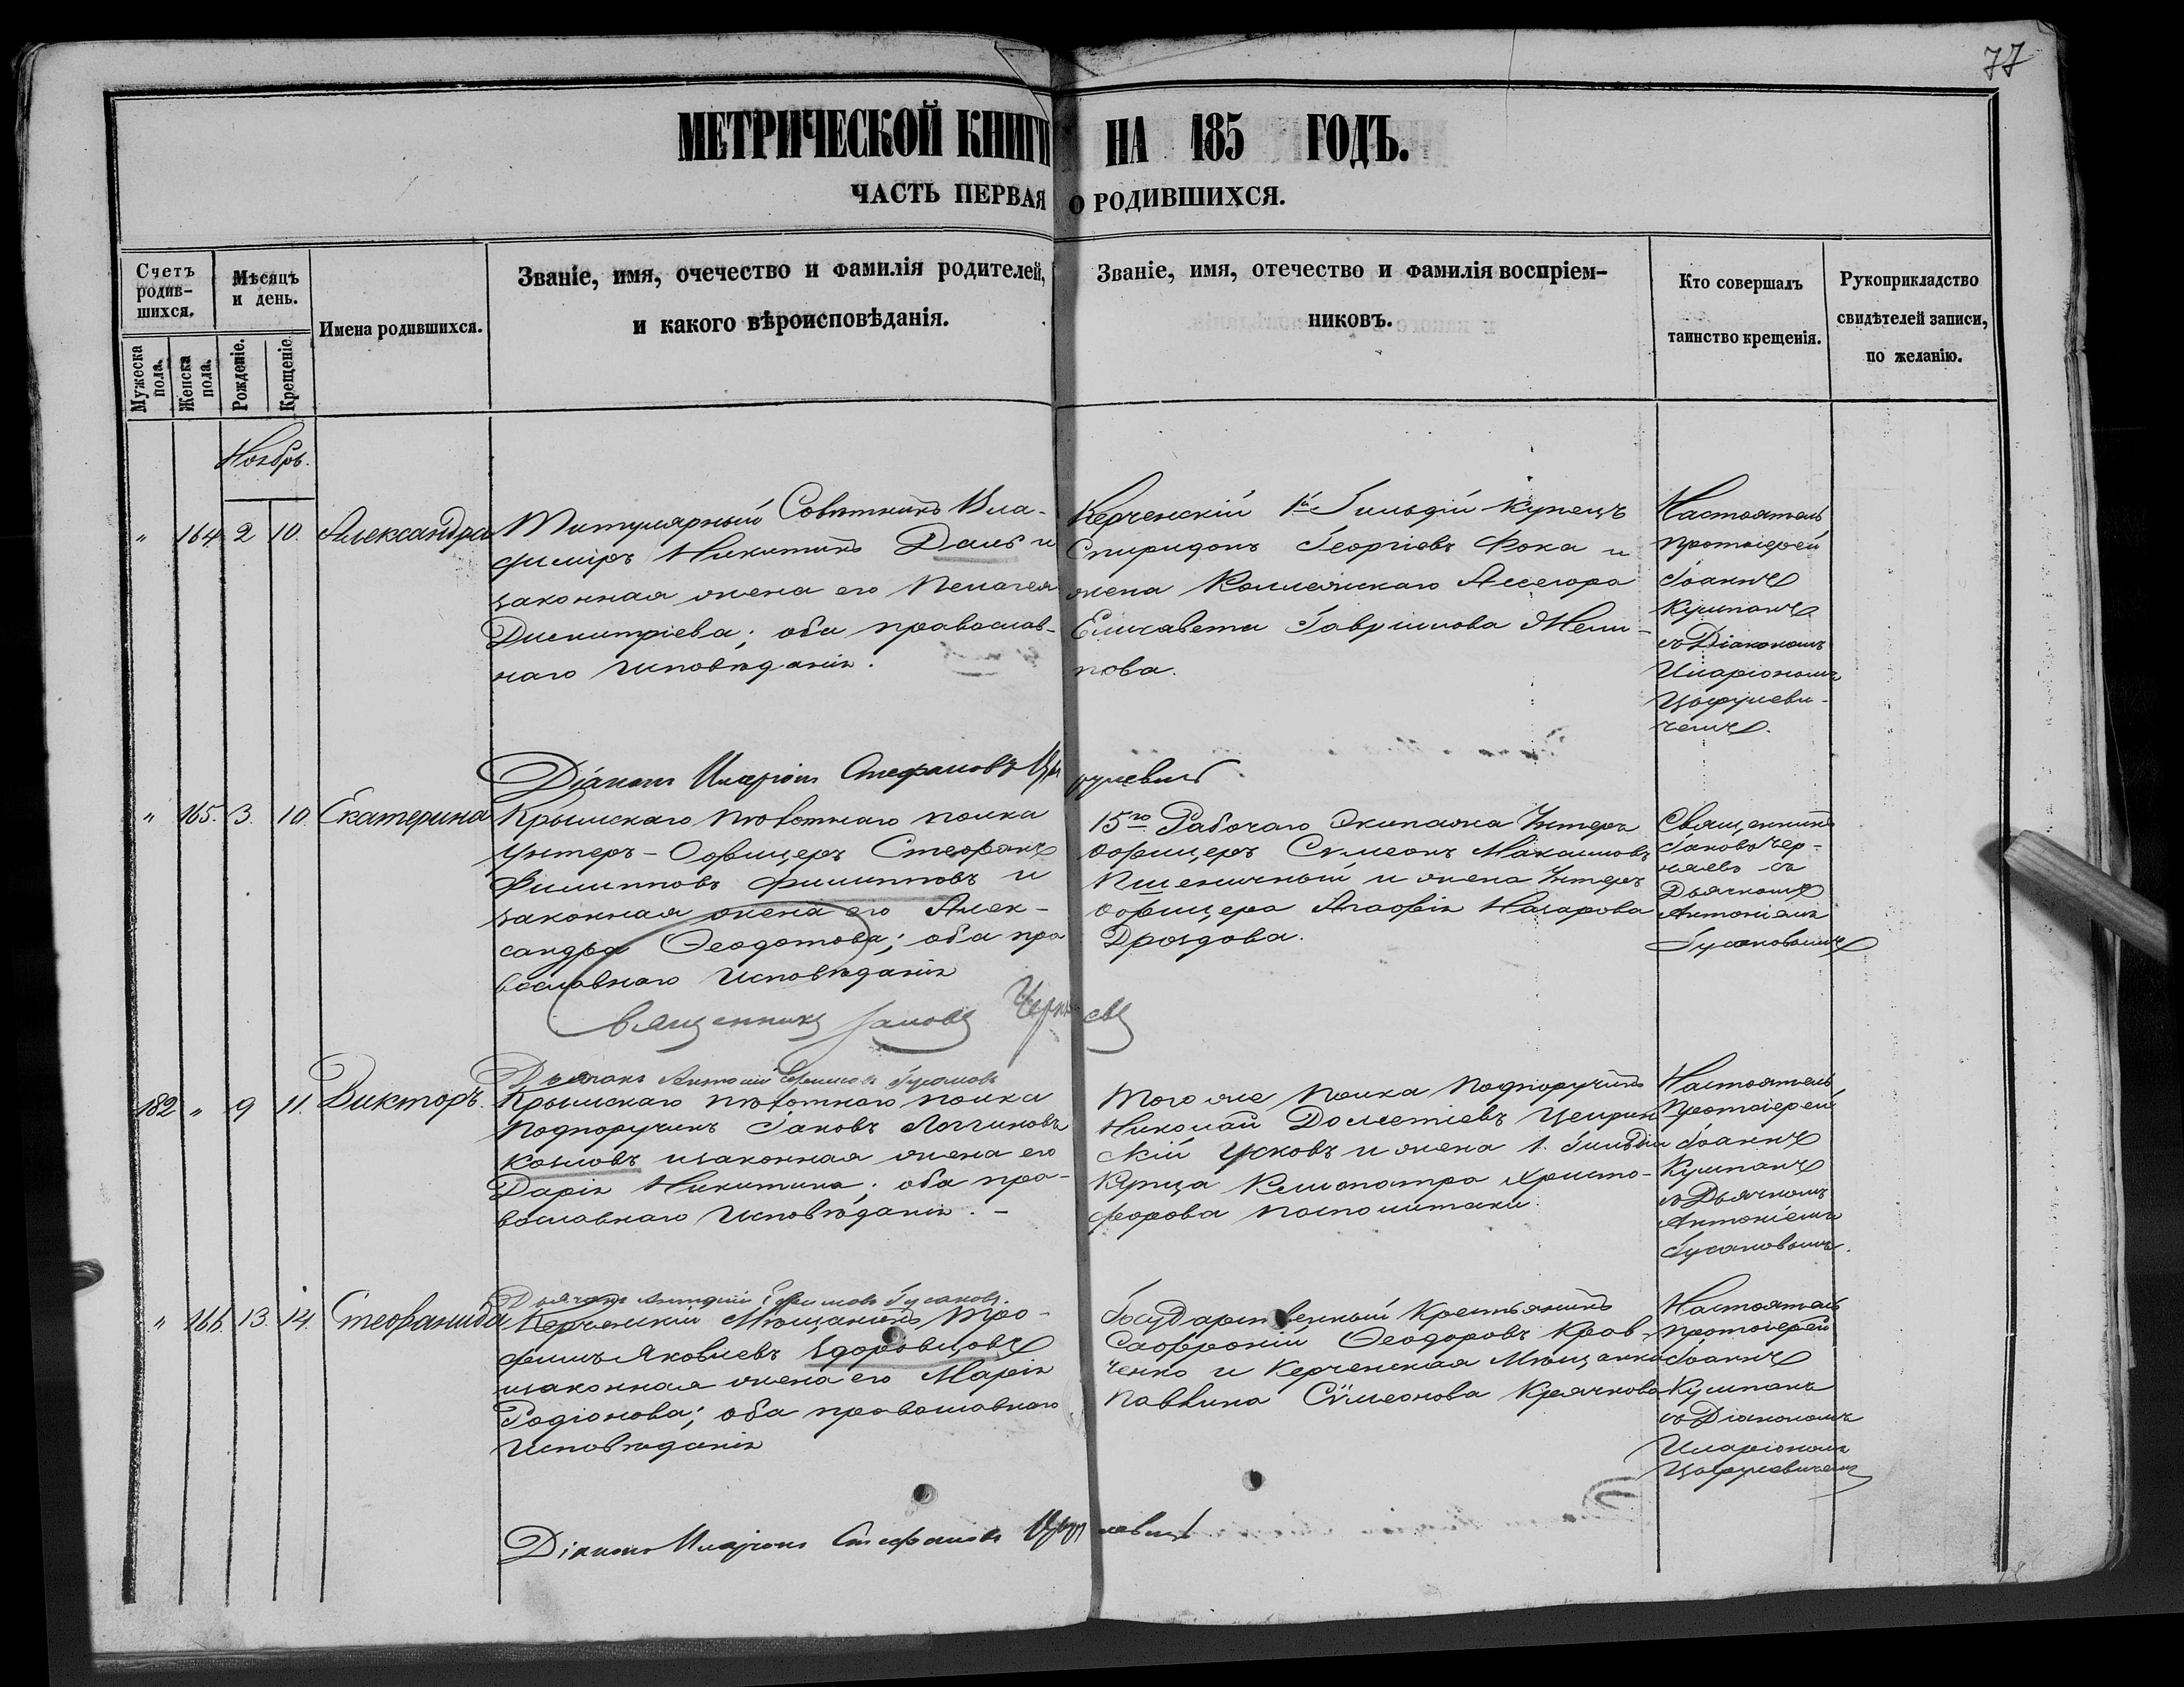 77
МЕТРИЧЕСКОЙ КНИГИ НА 185 ГОДЪ.
ЧАСТЬ ПЕРВАЯ О РОДИВШИХСЯ.
Счетъ родив-шихся.
Мужеска пола.
Женска пола.
Мѣсяцъ и день.
Рожденіе.
Крещеніе.
Имена родившихся.
Званіе, имя, очечество и фамилія родителей,
и какого вѣроисповѣданія.
Званіе, имя, отечество и фамилія воспріем-
никовъ.
Кто совершалъ
таинство крещенія.
Рукоприкладство
свидѣтелей записи,
по желанію.
Ноябрь.
" 164. 2 10. Александра
Титулярный Совѣтникъ Вла-
диміръ Никитинъ Даль и
законная жена его Пелагея
Димитріева; оба православ-
наго исповѣданія.
Керченскій 1й Гильдіи Купецъ
Спиридонъ Георгіевъ Фока и
жена Коллежскаго Ассесора
Елисавета Гавриилова
Настоятель
Протоіерей
Іоаннъ
съ Діакономъ
Иларіономъ
Діаконъ Иларіонъ Стефановъ
" 165. 3. 10. Екатерина
Крымскаго пѣхотнаго полка
Унтеръ-Офицеръ Стефанъ
Филипповъ Филипповъ и
законная жена его Алек-
сандра Ѳеодотова; оба пра
вославнаго исповѣданія
15го Рабочаго Экипажа Унтеръ
офицеръ Сѵмеонъ Максимовъ
Пшеничный и жена Унтеръ
офицера Агафія Назарова
Дроздова.
Священникъ
Іаковъ Чер-
няевъ съ
Дьячкомъ
Антоніемъ
Гусаковымъ
Священникъ Іаковъ Черняевъ
Дьячекъ Антоній Гусаковъ
182 " 9 11. Викторъ.
Крымскаго пѣхотнаго полка
Подпоручикъ Іаковъ Логгиновъ
Козловъ и законная жена его
Дарія Никитина; оба пра-
вославнаго исповѣданія. -
Того же полка Подпоручикъ
Николай Дометіевъ
скій Усковъ и жена 1. Гильдіи
Купца Клеопатра Христо-
форова
Настоятель
Протоіерей
Іоаннъ
съ Дьячкомъ
Антоніемъ
Гусаковымъ.
Дьячекъ Антоній Гусаковъ.
" 166. 13. 14. Стефанида
Керченскій Мѣщанинъ Тро-
фимъ Яковлевъ Здоровцовъ
и законная жена его Марія
Родіонова; оба православнаго
исповѣданія
Государственный Крестьянинъ
Софроній Ѳеодоровъ Крав-
ченко и Керченская Мѣщанка
Павлина Сѵмеонова Крячкова
Настоятель
Протоіерей
Іоаннъ
съ Діакономъ
Иларіономъ
Діаконъ Иларіонъ Стефановъ